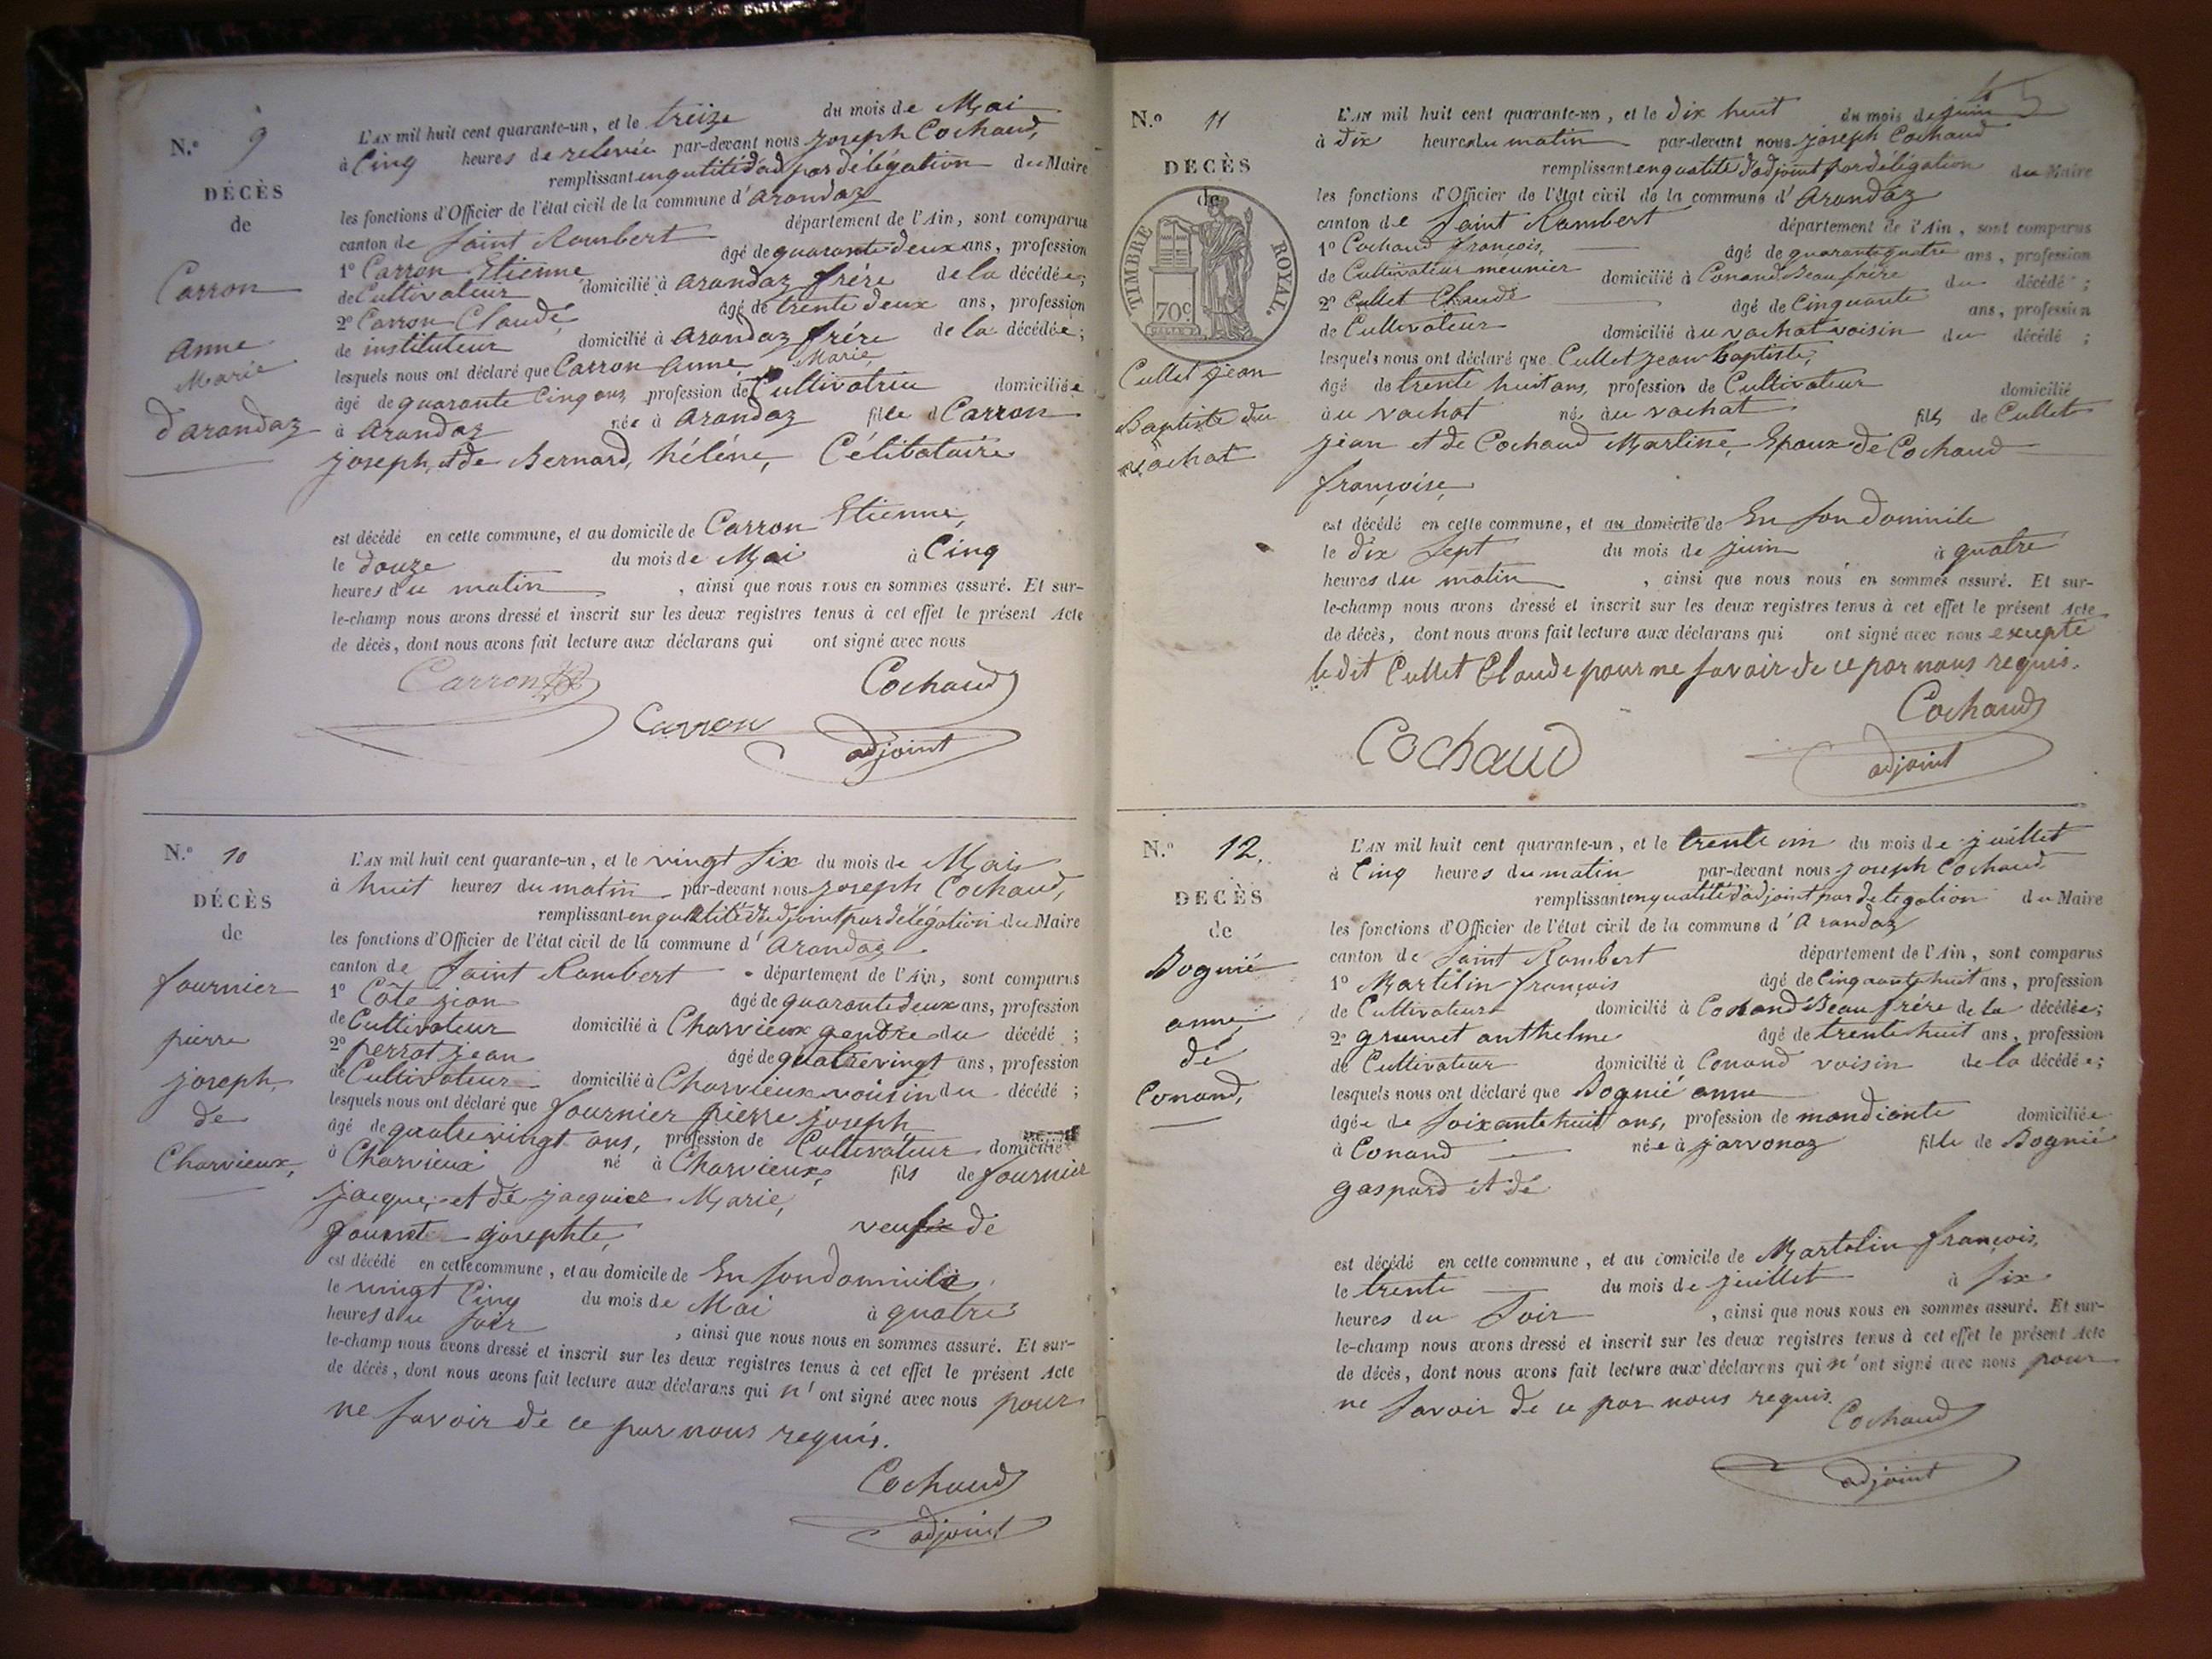 N.° 9
DÉCÈS
de
Carron
Anne
Marie
d'arandaz
L'AN mil huit cent quarante-un, et le treize du mois de Mai
à Cinq heures de relevée par-devant nous joseph Cochaud,
remplissant en qutité d'ad par délégation du Maire
les fonctions d'Officier de l'état civil de la commune d'arandaz
canton de Saint Rambert département de l'Ain, sont comparus
1° Carron Etienne âgé de quarante deux ans, profession
de Cultivateur domicilié à arandaz frére de la décédée;
2° Carron Claude, âgé de trente deux ans, profession
de instituteur domicilié à arandaz frére de la décédée;
lesquels nous ont déclaré que Carron anne Marie,
âgé de quarante Cinq ans, profession de Cultivatrice domiciliée
à arandaz née à arandaz fille d Carron
joseph, et de Bernard, héléne, Célibataire
est décédé en cette commune, et au domicile de Carron Etienne,
le douze du mois de Mai à Cinq
heures du matin, ainsi que nous nous en sommes assuré. Et sur-
le-champ nous avons dressé et inscrit sur les deux registres tenus à cet effet le présent Acte
de décès, dont nous avons fait lecture aux déclarans qui ont signé avec nous
Carron Cochaud
Carron adjoint
N.° 10
DÉCÈS
de
fournier
pierre
joseph,
de
Charvieux,
L'AN mil huit cent quarante-un, et le vingt six du mois de Mai
à huit heures du matin par-devant nous joseph Cochaud,
remplissant en qualitité d'adjoint par délégation du Maire
les fonctions d'Officier de l'état civil de la commune d'arandaz
canton de Saint Rambert département de l'Ain, sont comparus
1° Côte jean âgé de quarante deux ans, profession
de Cultivateur domicilié à Charvieux gendre du décédé;
2° perrat jean âgé de quatre vingt ans, profession
de Cultivateur domicilié à Charvieux voisin du décédé;
lesquels nous ont déclaré que fournier pierre joseph,
âgé de quatre vingt ans, profession de Cultivateur domicilié
à Charvieux né à Charvieux, fils de fournier
jacque, et de jacquier Marie,
josephte, veuf de
est décédé en cette commune, et au domicile de En son domicile,
le vingt Cinq du mois de Mai à quatre
heures du soir, ainsi que nous nous en sommes assuré. Et sur-
le-champ nous avons dressé et inscrit sur les deux registres tenus à cet effet le présent Acte
de décès, dont nous avons fait lecture aux déclarans qui n'ont signé avec nous pour
ne savoir de ce par nous requis.
Cochaud
adjoint
N.° 11
DECÈS
de
TIMBRE ROYAL.
70c
Cullet jean
Baptiste du
vachat
L'AN mil huit cent quarante-un, et le dix huit du mois de juin
à dix heures du matin par-devant nous joseph Cochaud
remplissant en qualité d'adjoint par délégation du Maire
les fonctions d'Officier de l'état civil de la commune d'Arandaz
canton de Saint Rambert département de l'Ain, sont comparus
1° Cochaud françois, âgé de quarante quatre ans, profession
de Cultivateur meunier domicilié à Conand Beau frére du décédé;
2° Cullet Claude âgé de Cinquante ans, profession
de Cultivateur domicilié au vachat voisin du décédé;
lesquels nous ont déclaré que Cullet jean baptiste,
âgé de trente huit ans, profession de Cultivateur domicilié
au vachat né au vachat fils de Cullet
jean et de Cochaud Martine, Epoux de Cochaud
françoise,
est décédé en cette commune, et au domicile de En son domicile
le dix sept du mois de juin à quatre
heures du matin, ainsi que nous nous en sommes assuré. Et sur-
le-champ nous avons dressé et inscrit sur les deux registres tenus à cet effet le présent Acte
de décès, dont nous avons fait lecture aux déclarans qui ont signé avec nous excepté
le dit Cullet Claude pour ne savoir de ce par nous requis.
Cochaud
Cochaud adjoint
N.° 12.
DECÈS
de
Bognié
anne,
de
Conand,
L'AN mil huit cent quarante-un, et le trente un du mois de juillet
à Cinq heures du matin par-devant nous joseph Cochaud
remplissant en qualité d'adjoint par delegation du Maire
les fonctions d'Officier de l'état civil de la commune d'Arandaz
canton de Saint Rambert département de l'Ain, sont comparus
1° Martelin françois âgé de Cinquante huit ans, profession
de Cultivateur domicilié à Conand Beau frére de la décédée;
2° grumet anthelme âgé de trente huit ans, profession
de Cultivateur domicilié à Conand voisin de la décédée;
lesquels nous ont déclaré que Bognié anne
âgée de soixante huit ans, profession de mandiante domiciliée
à Conand née à jarvonoz fille de Bognié
gaspard et de
est décédé en cette commune, et au domicile de Martelin françois,
le trente du mois de juillet à six
heures du Soir, ainsi que nous nous en sommes assuré. Et sur-
le-champ nous avons dressé et inscrit sur les deux registres tenus à cet effet le présent Acte
de décès, dont nous avons fait lecture aux déclarans qui n'ont signé avec nous pour
ne savoir de ce par nous requis.
Cochaud
adjoint